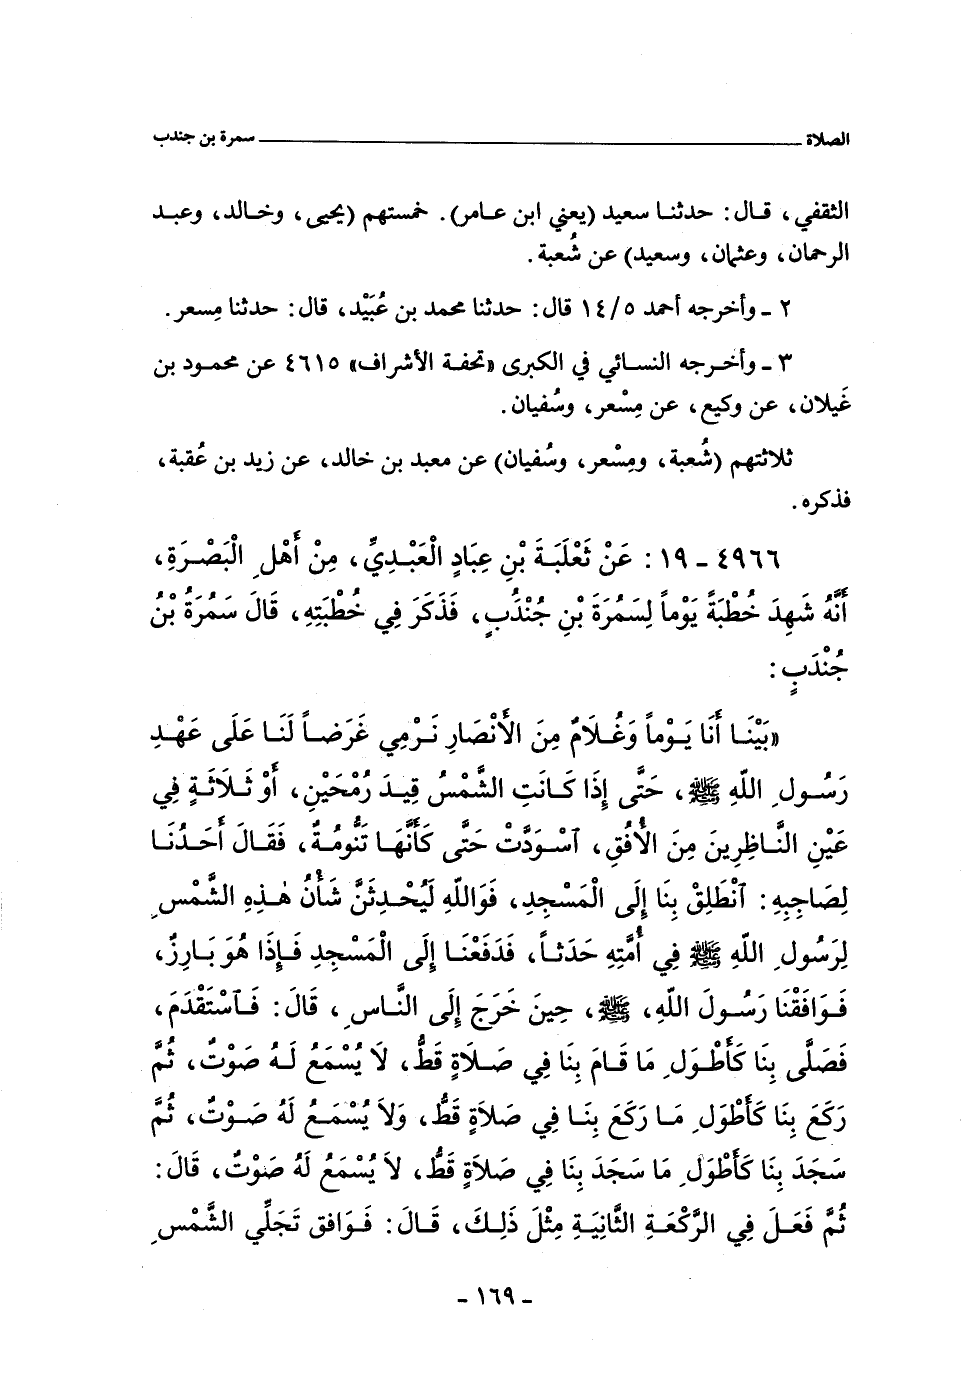 الصلاة ــــــــــــــــــــ سمرة بن جندب
الثقفي، قال: حدثنا سعيد (يعني ابن عامر). خمستهم (يحيى، وخالد، وعبد
الرحمان، وعثمان، وسعيد) عن شُعبة.
٢ - وأخرجه أحمد ١٤/٥ قال: حدثنا محمد بن عُبَيْد، قال: حدثنا مِسعر.
٣ - وأخرجه النسائي في الكبرى «تحفة الأشراف» ٤٦١٥ عن محمود بن
غَيلان، عن وكيع، عن مِسْعر، وسُفيان.
ثلاثتهم (شُعبة، ومِسْعر، وسُفيان) عن معبد بن خالد، عن زيد بن عُقبة،
فذكره.
٤٩٦٦ - ١٩: عَنْ ثَعْلَبَةَ بْنِ عِبَادٍ الْعَبْدِيِّ، مِنْ أَهْلِ الْبَصْرَةِ،
أَنَّهُ شَهِدَ خُطْبَةً يَوْماً لِسَمُرَةَ بْنِ جُنْدُبٍ، فَذَكَرَ فِي خُطْبَتِهِ، قَالَ سَمُرَةُ بْنُ
جُنْدَبٍ:
«بَيْنَا أَنَا يَوْماً وَغُلَامٌ مِنَ الْأَنْصَارِ نَرْمِي غَرَضاً لَنَا عَلَى عَهْدِ
رَسُولِ اللّهِ ﷺ، حَتَّى إِذَا كَانَتِ الشَّمْسُ قِيدَ رُمْحَيْنِ، أَوْ ثَلَاثَةٍ فِي
عَيْنِ النَّاظِرِينَ مِنَ الْأُفُقِ، آسْوَدَّتْ حَتَّى كَأَنَّهَا تَنُّومَةٌ، فَقَالَ أَحَدُنَا
لِصَاحِبِهِ: آنْطَلِقْ بِنَا إِلَى الْمَسْجِدِ، فَوَاللّهِ لَيُحْدِثَنَّ شَأْنُ هٰذِهِ الشَّمْسِ
لِرَسُولِ اللّهِ ﷺ فِي أُمَّتِهِ حَدَثاً، فَدَفَعْنَا إِلَى الْمَسْجِدِ فَإِذَا هُوَ بَارِزٌ،
فَوَافَقْنَا رَسُولَ اللّهِ، ﷺ، حِينَ خَرَجَ إِلَى النَّاسِ، قَالَ: فَآسْتَقْدَمَ،
فَصَلَّى بِنَا كَأَطْوَلِ مَا قَامَ بِنَا فِي صَلَاةٍ قَطُّ، لَا يُسْمَعُ لَهُ صَوْتٌ، ثُمَّ
رَكَعَ بِنَا كَأَطْوَلِ مَا رَكَعَ بِنَا فِي صَلَاةٍ قَطُّ، وَلَا يُسْمَعُ لَهُ صَوْتٌ، ثُمَّ
سَجَدَ بِنَا كَأَطْوَلِ مَا سَجَدَ بِنَا فِي صَلَاةٍ قَطُّ، لَا يُسْمَعُ لَهُ صَوْتٌ، قَالَ:
ثُمَّ فَعَلَ فِي الرَّكْعَةِ الثَّانِيَةِ مِثْلَ ذَلِكَ، قَالَ: فَوَافَقَ تَجَلِّي الشَّمْسِ
- ١٦٩ -